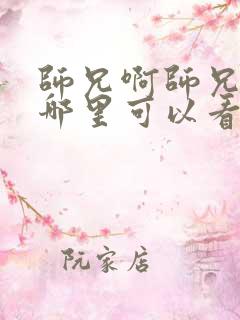 師兄啊師兄
哪里可以看
阮家店